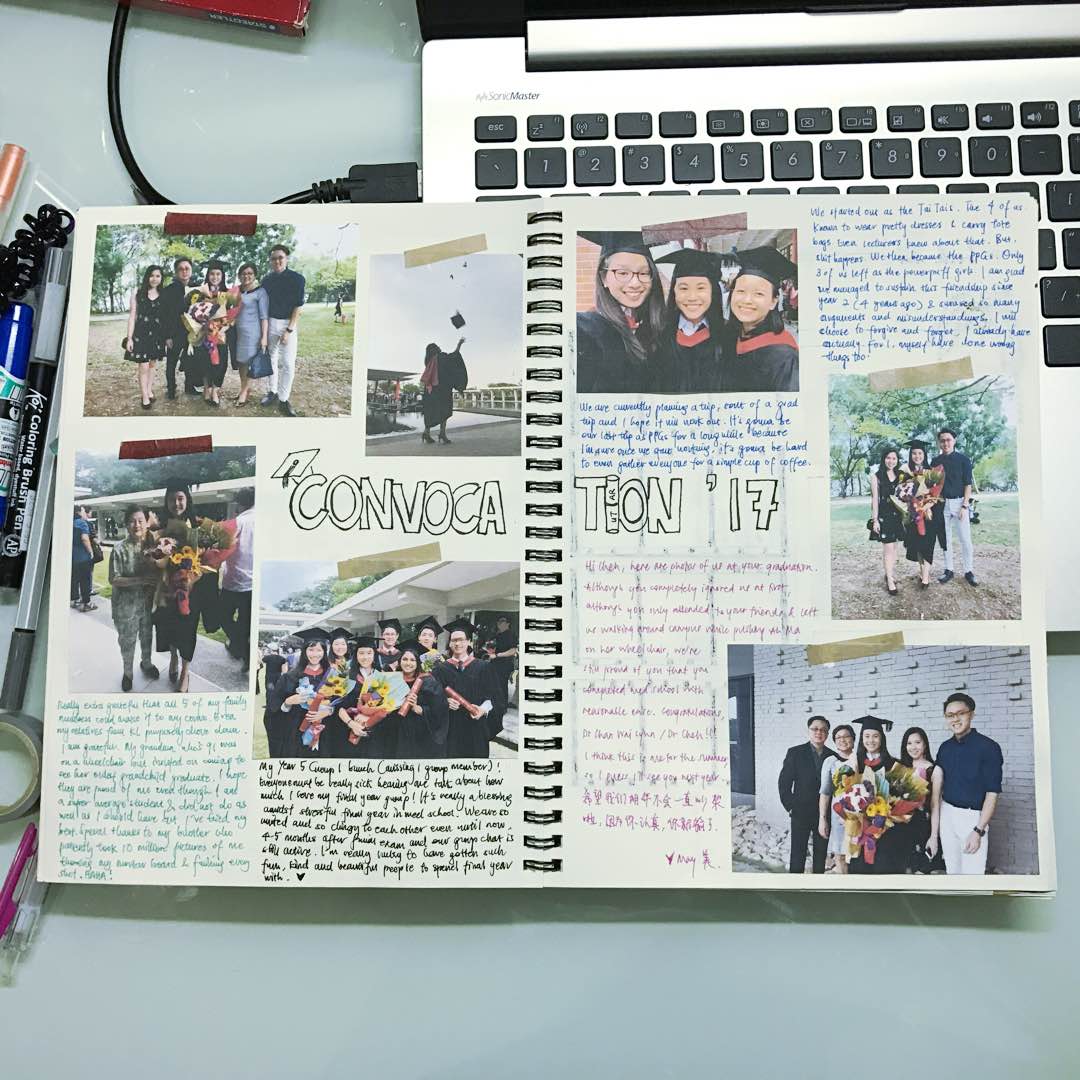 STAEDTLER
SonicMaster
esc f1 f2 f3 f4 f5 f6 f7 f8 f9 f10 f11 f12
~ ! @ # $ % ^ & * ( )
` 1 2 3 4 5 6 7 8 9 0
Coloring Brush Pen AP
CONVOCATION '17
Really extra grateful that all 5 of my family
members could make it to my convo. Even
my relatives from KL purposely drove down.
I am grateful. My grandma who's 91 was
on a wheelchair but insisted on coming to
see her oldest grandchild graduate. I hope
they are proud of me even though I am
a super average student & did not do as
well as I should have but I've tried my
best. Special thanks to my brother who
patiently took 10 million pictures of me
throwing my mortar board & failing every
shot. HAHA!
My Year 5 Group 1 bunch (missing 1 group member)!
Everyone must be really sick hearing me talk about how
much I love my final year group! It's really a blessing
amidst stressful final year in med school. We are so
united and so clingy to each other even until now.
4-5 months after final exam and our group chat is
still active. I'm really lucky to have gotten such
fun, kind and beautiful people to spend final year
with. ♥
We started out as the Tai Tais. The 4 of us
known to wear pretty dresses & carry tote
bags. Even lecturers knew about that. But
shit happens. We then became the PPGs. Only
3 of us left as the powerpuff girls. I am glad
we managed to sustain this friendship since
year 2 (4 years ago) & survived so many
arguments and misunderstandings. I will
choose to forgive and forget. I already have
actually. For I, myself have done wrong
things too.
We are currently planning a trip, sort of a grad
trip and I hope it will work out. It's gonna be
our last trip as PPGs for a long while because
I'm sure once we start working, it's gonna be hard
to even gather everyone for a simple cup of coffee.
Hi Cheh, here are photos of us at your graduation.
Although you completely ignored us at first,
although you only attended to your friends & left
us walking around campus while pushing Ah Ma
on her wheelchair, we're
still proud of you that you
completed med school with
reasonable ease. Congratulations,
Dr Chan Wai Lynn / Dr Cheh!!!
I think this is me for the summer
so I guess I see you next year.
希望我们明年不会一直吵架
啦，因为你认真，你就输了。
♥ May